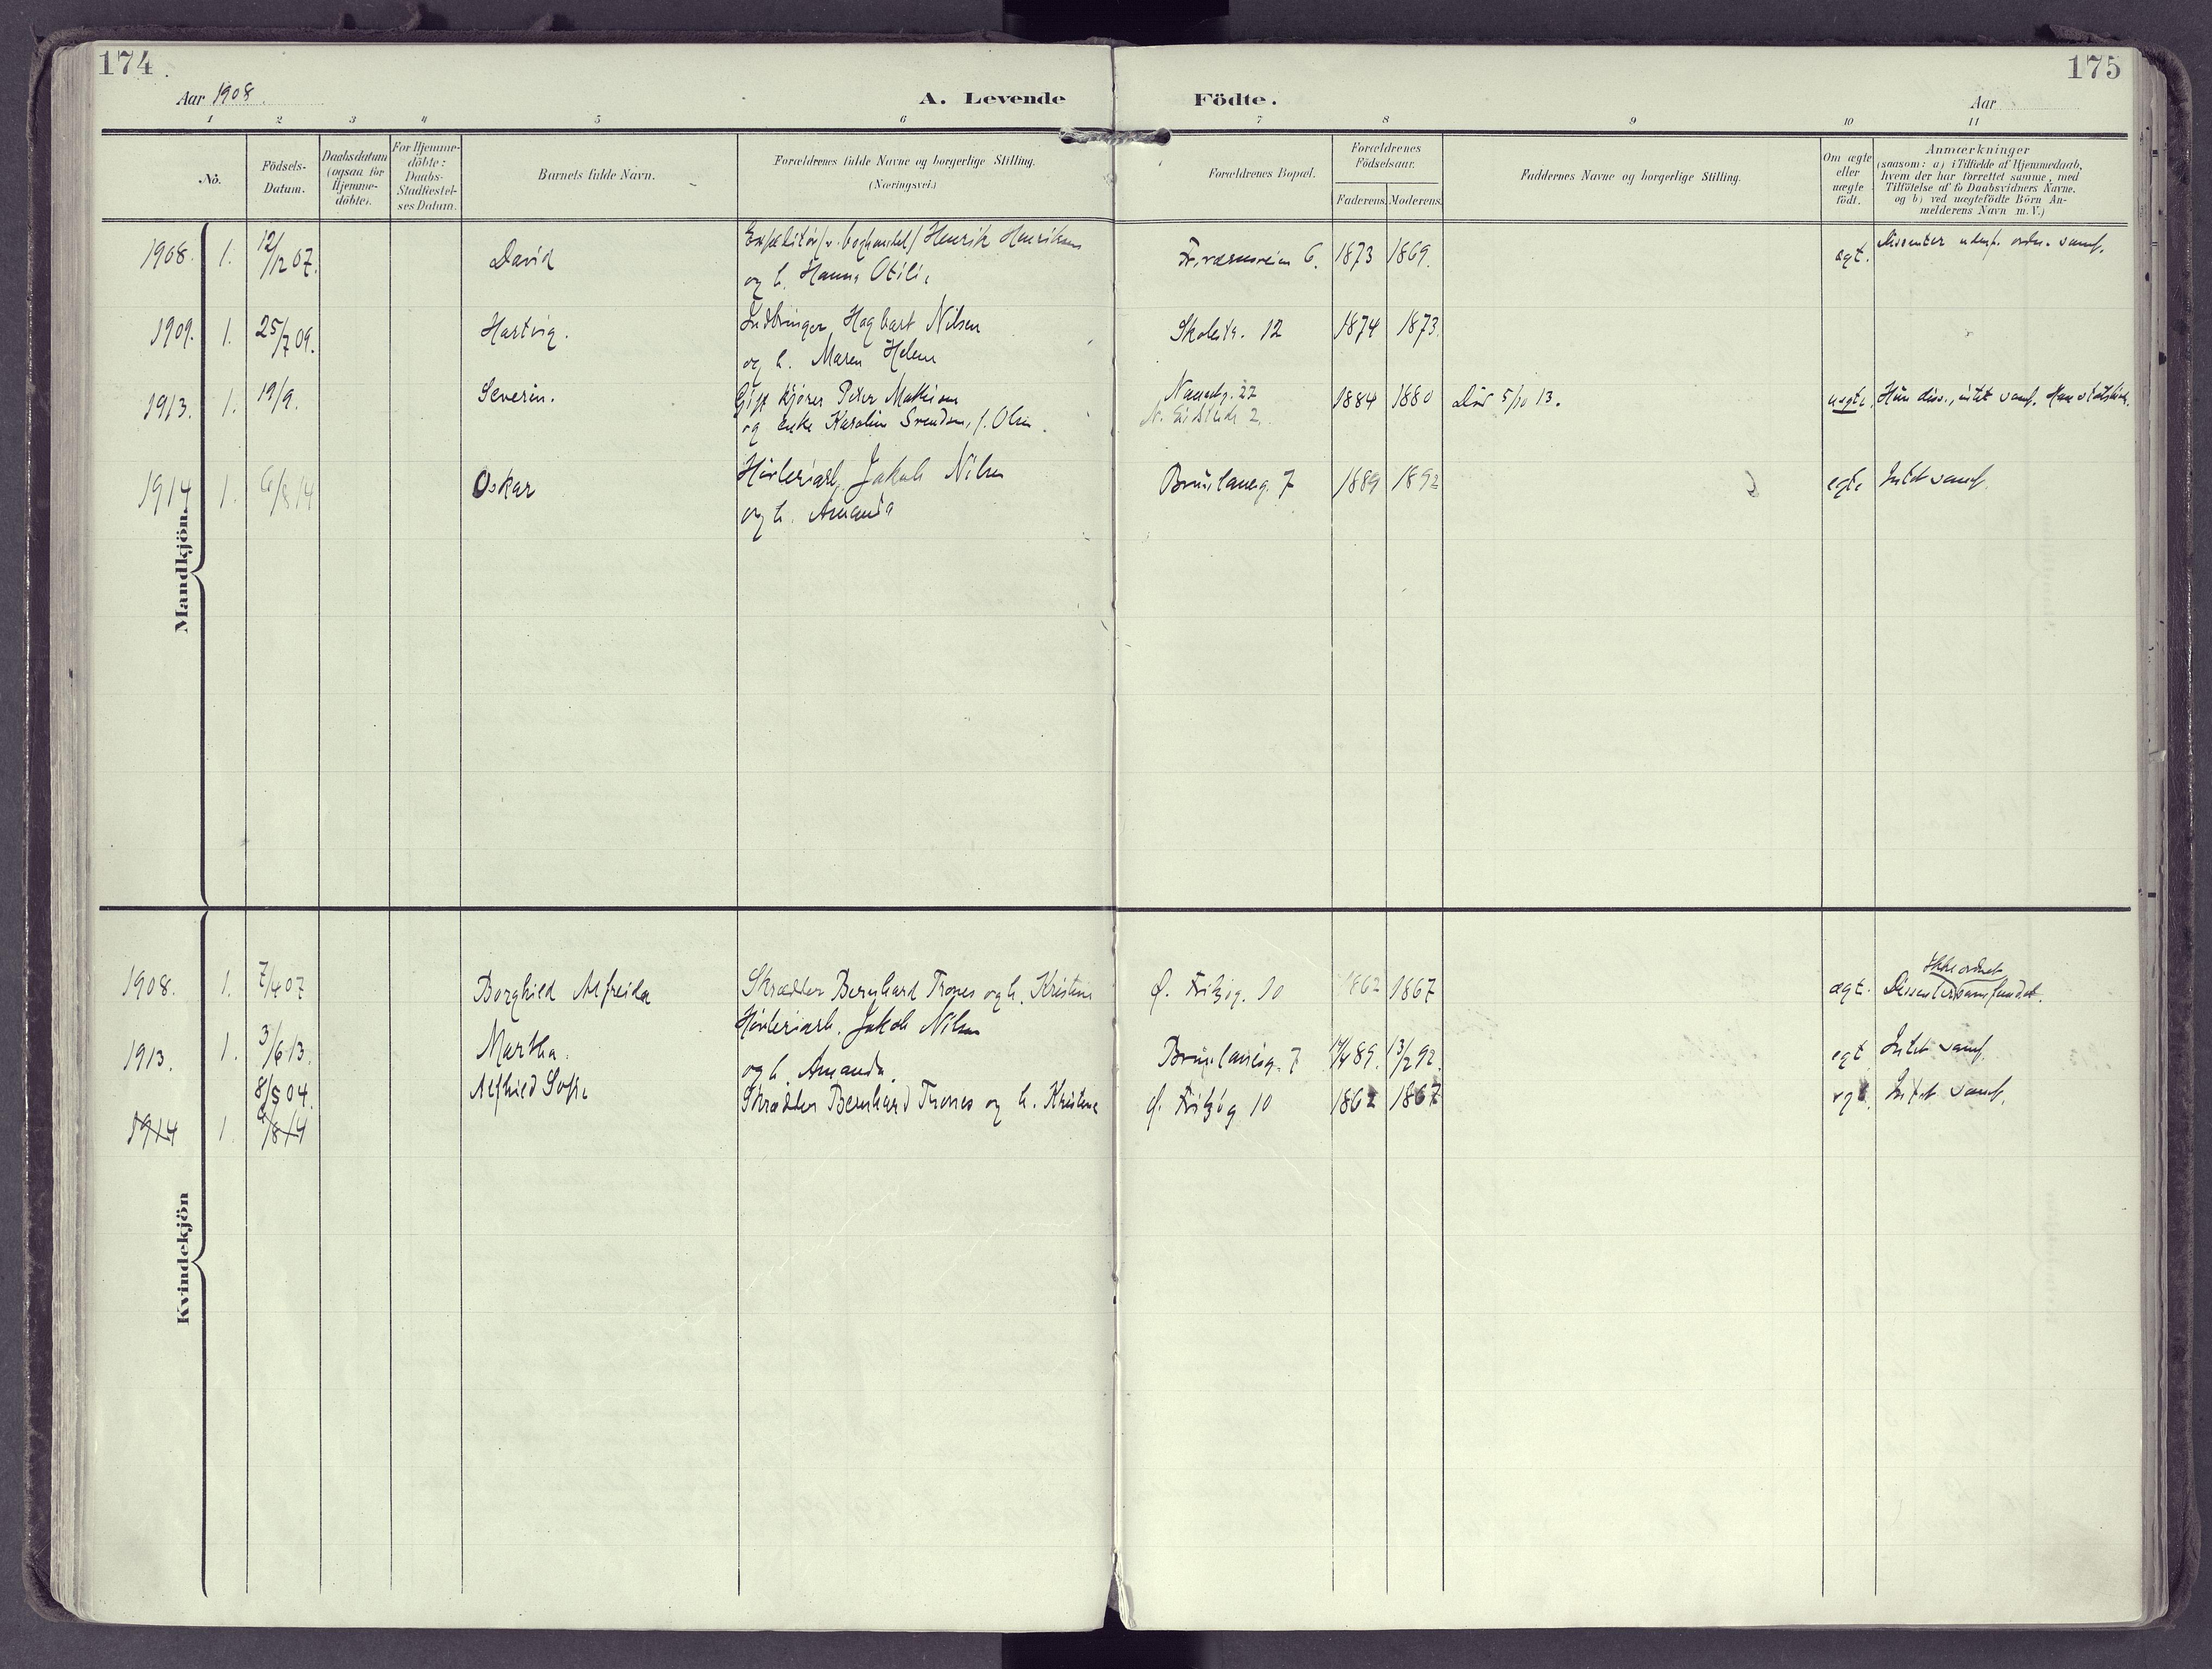 174
175
Aar 1908.
A. Levende Födte.
Aar
1 2 3 4 5 6 7 8 9 10 11
No.
Födsels-Datum.
Daabsdatum (ogsaa for Hjemme-döbte).
For Hjemme-döbte: Daabs-Stadfæstel-ses Datum.
Barnets fulde Navn.
Forældrenes fulde Navne og borgerlige Stilling.
(Næringsvei.)
Forældrenes Bopæl.
Forældrenes Födselsaar.
Faderens. Moderens.
Faddernes Navne og borgerlige Stilling.
Om ægte eller uægte födt.
Anmærkninger
(saasom: a) i Tilfælde af Hjemmedaab,
hvem der har forrettet samme, med
Tilföielse af to Daabsvidners Navne.
og b) ved uægtefödte Börn An-
melderens Navn m. V.)
Mandkjön.
1908. 1. 12/12 07. David Henrik Henriksen 6. 1873 1869. ægt. Dissenter
og h. Hanna Otilie
1909. 1. 25/7 09. Hartvig. Hagbart Nilsen Skolestr. 12 1874 1873.
og h. Maren Helene
1913. 1. 19/9. Severin. Gift kjører Peter Mathisen 22 1884 1880 Død 5/10 13. uegte. Hun diss., intet samf. Han statskirk.
og enke Karoline Svendsen, f. Olsen. 2.
1914 1. 6/8 14 Oskar Høvleriarb. Jakob Nilsen Brunlanesg. 7 1889 1892 egte Intet samf.
og h. Amanda
Kvindekjön
1908. 1. 7/4 07 Borghild Alfreida Skrædder Bernhard Trones og h. Kristine Ø. Fritzøg. 10 1862 1867 ægt. Dissentersamfundet.
Ikke ordnet
1913. 1. 3/6 13. Martha. Høvleriarb. Jakob Nilsen Brunlanesg. 7 14/4 89. 13/2 92. egt Intet samf.
og h. Amanda.
8/5 04. Alfhild Sofie Skrædder Bernhard Trones og h. Kristine Ø. Fritzøg 10 1862 1867 egt. Intet samf.
1914 1. 6/8 14